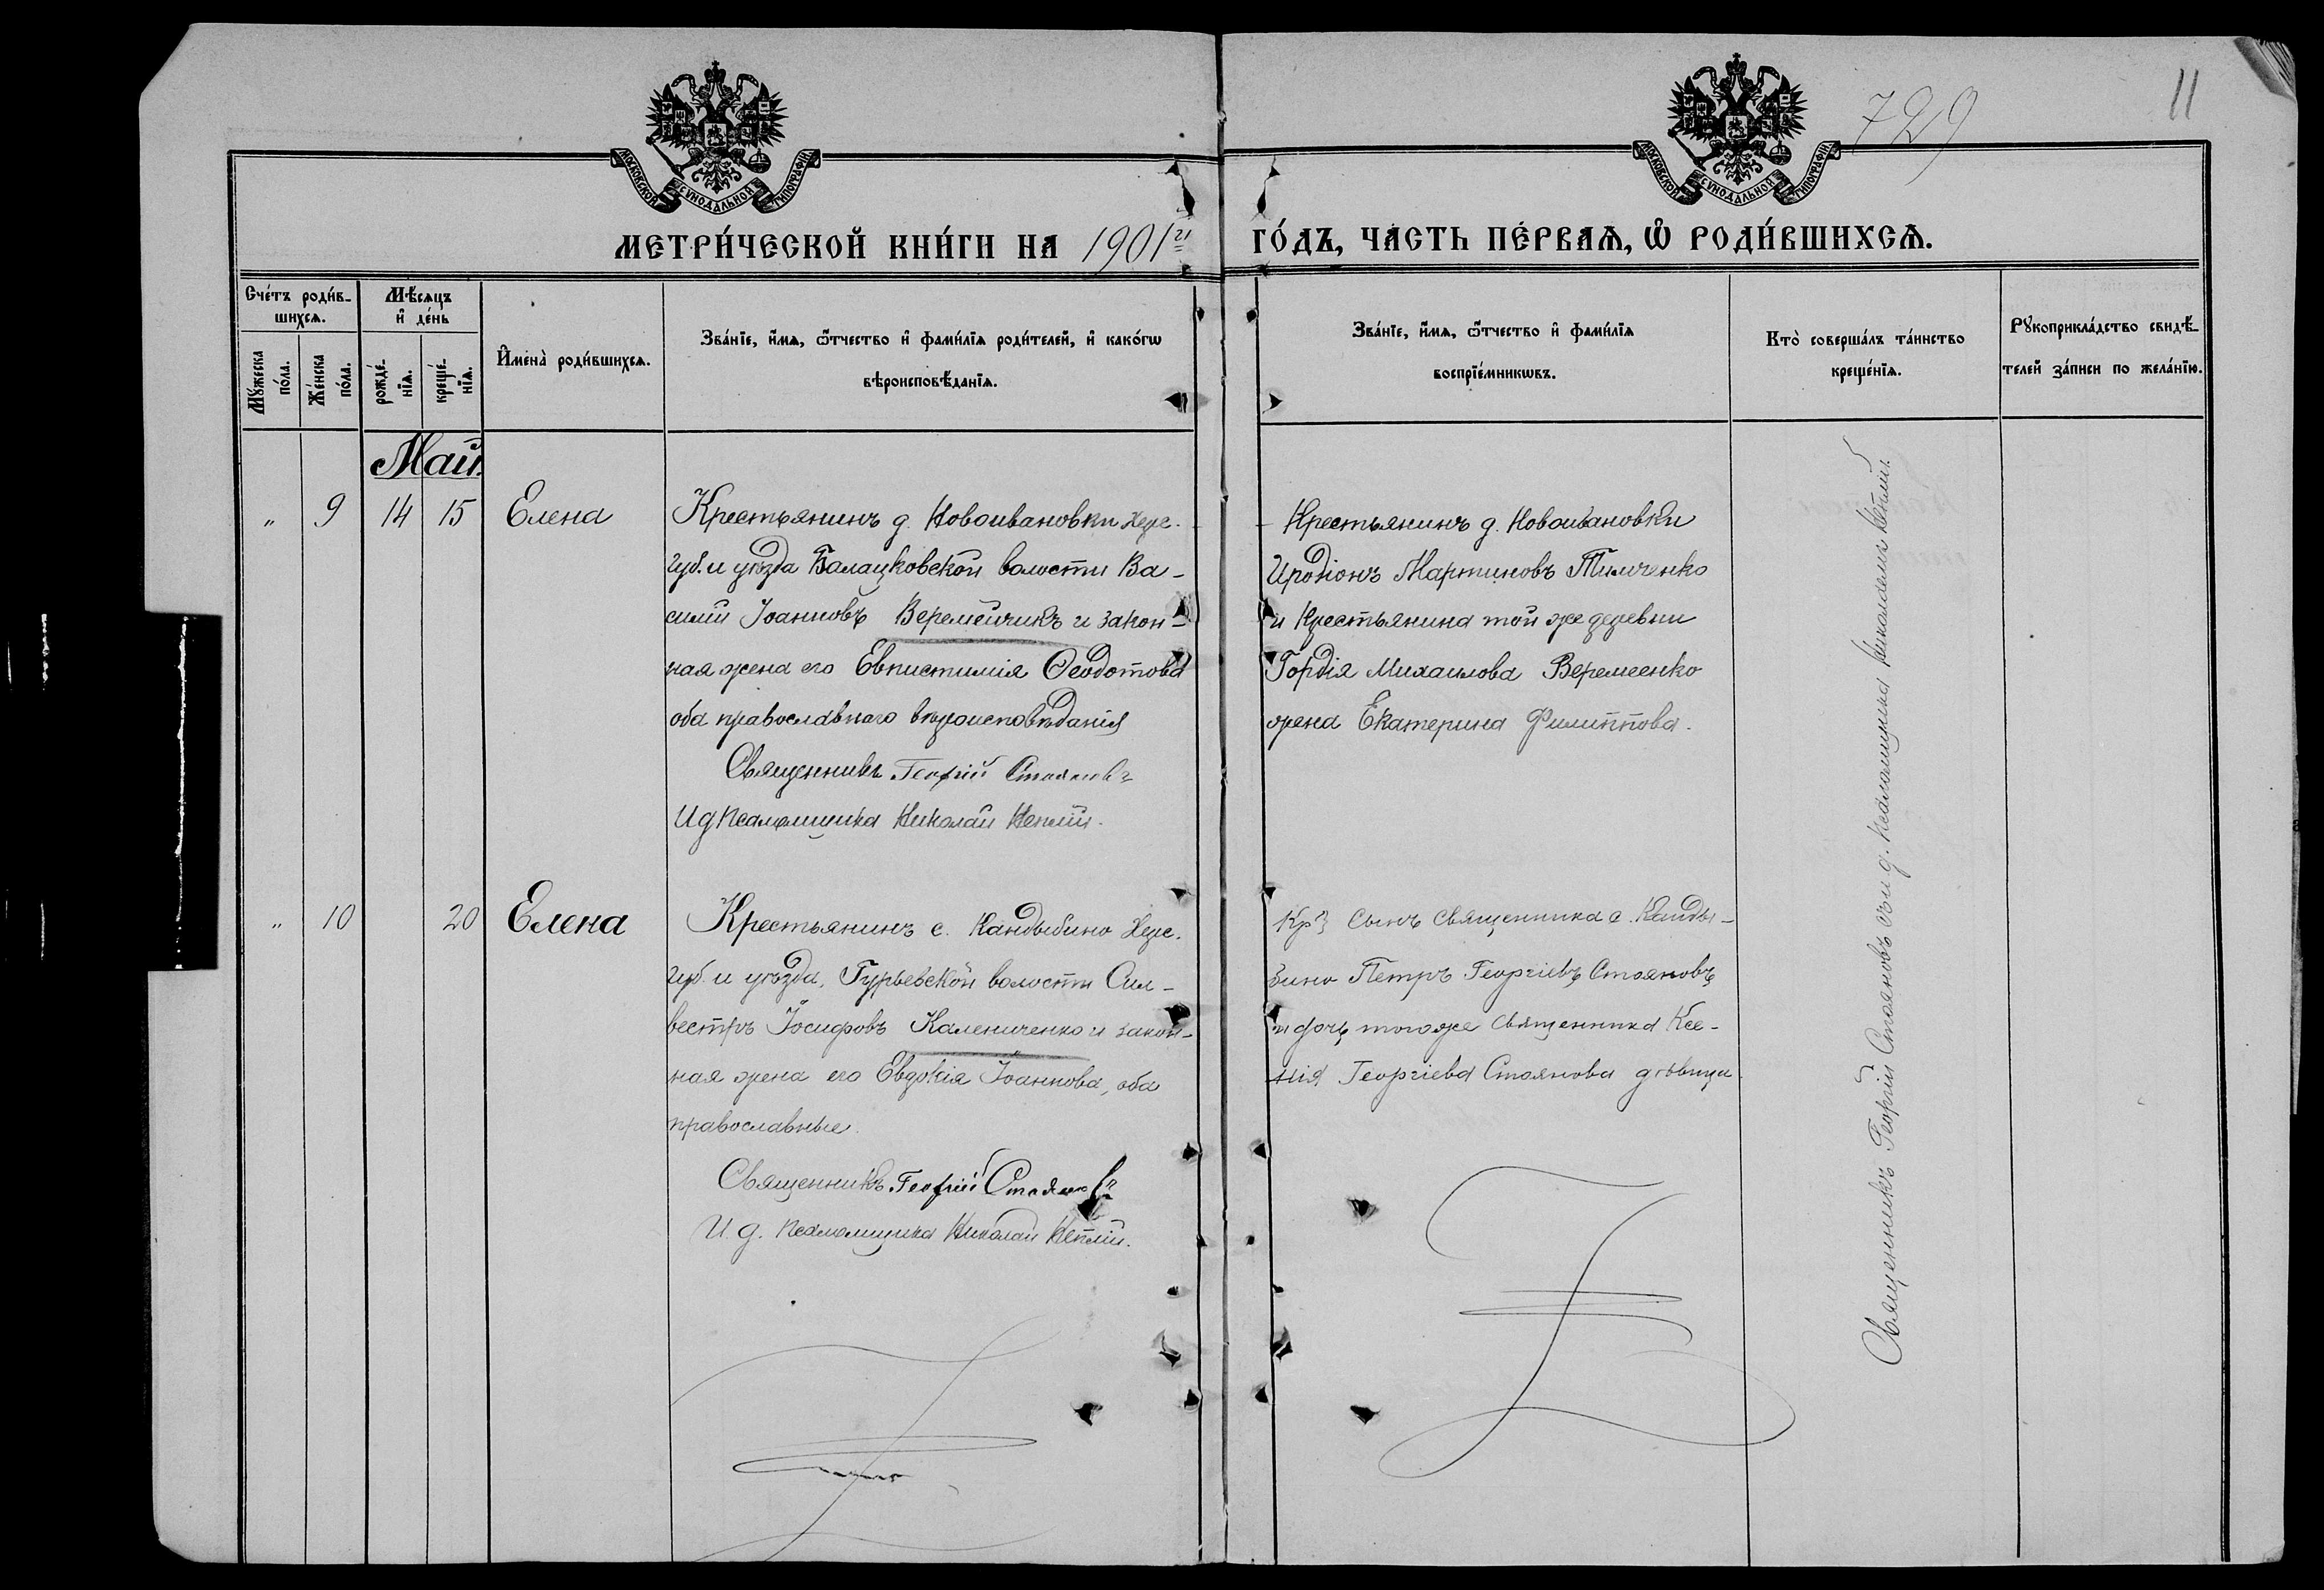 729
11
МОСКОВСКОЙ СѴНОДАЛЬНОЙ ТИПОГРАФІИ
МОСКОВСКОЙ СѴНОДАЛЬНОЙ ТИПОГРАФІИ
МЕТРИ́ЧЕСКОЙ КНИ́ГИ НА 1901й
ГО́ДЪ, ЧА́СТЬ ПЕ́РВАѦ, Ѽ РОДИ́ВШИХСѦ.
Сче́тъ роди́в-
шихсѧ.
Мꙋ́жеска по́ла.
Же́нска по́ла.
Мѣ́сѧцъ и҆ де́нь
рожде́-
нїѧ.
креще́-
нїѧ.
И҆мена̀ роди́вшихсѧ.
Зва́нїе, и҆́мѧ, ѻ҆́тчество и҆ фами́лїѧ роди́телей, и҆ како́гѡ
вѣроисповѣ́данїѧ.
Зва́нїе, и҆́мѧ, ѻ҆́тчество и҆ фами́лїѧ
воспрїе́мникѡвъ.
Кто̀ соверша́лъ та́инство
креще́нїѧ.
Рꙋкоприкла́дство свидѣ́-
телей за́писи по жела́нїю.
Май.
„ 9 14 15 Елена
Крестьянинъ д. Новоивановки Херс.
губ. и уѣзда Балацковской волости Ва-
силій Іоанновъ Веремейчикъ и закон-
ная жена его Евпистимія Ѳеодотова
оба православнаго вѣроисповѣданія
Священникъ Георгій Стояновъ
И д псаломщика Николай Кепній.
Крестьянинъ д. Новоивановки
Иродіонъ Мартиновъ Тимченко
и Крестьянина той же деревни
Гордія Михаилова Веремеенко
жена Екатерина Филиппова.
„ 10 20 Елена
Крестьянинъ с. Кандыбино Херс.
губ. и уѣзда, Гурьевской волости Сил-
вестръ Іосифовъ Калениченко и закон-
ная жена его Евдокія Іоаннова, оба
православные.
Священникъ Георгій Стояновъ
И. д. псаломщика Николай
сынъ священника с. Канды-
бино Петръ Георгіевъ Стояновъ
и дочь тогоже священника Ксе-
нія Георгіева Стоянова дѣвица
Священникъ Георгій Стояновъ съ и. д. псаломщика Николаемъ